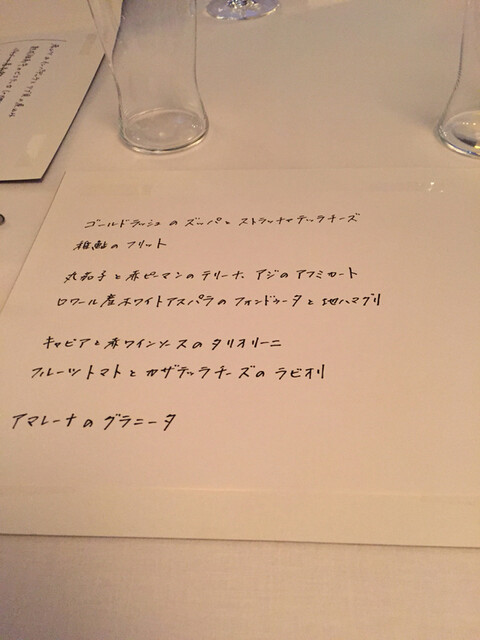 ゴールドラッシュのズッパと ストラッチャテッラチーズ
稚鮎のフリット
丸茄子と赤ピーマンのテリーヌ、アジのアフミカート
ロワール産ホワイトアスパラのフォンドゥータと地ハマグリ
キャビアと赤ワインソースのタリオリーニ
フルーツトマトとカザテッラチーズのラビオリ
アマレーナのグラニータ